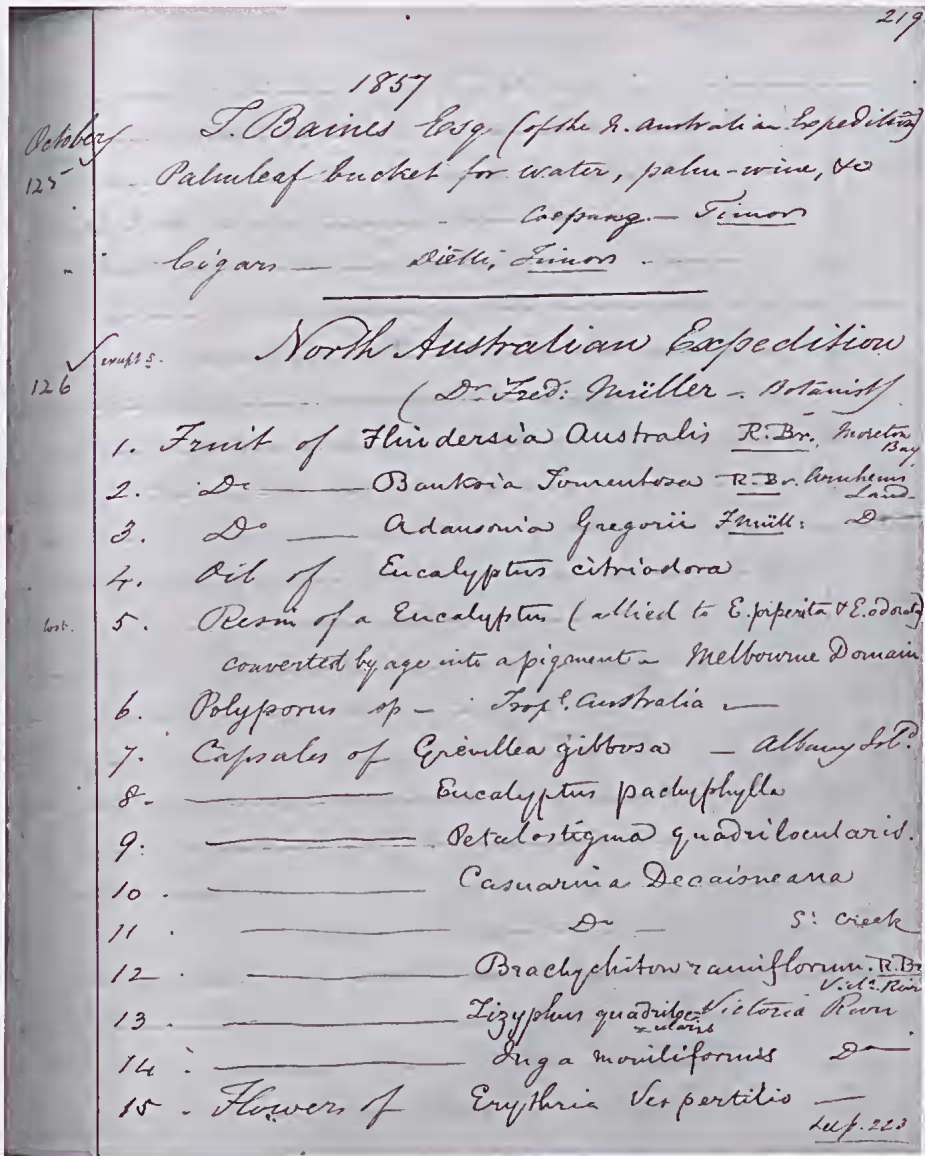 219
1857
October
T. Baines Esq (of the N. Australian Expedition)
125
Palmleaf bucket for water, palm-wine, &c
Coepang — Timor
Cigars — Dielli, Timor —
126 ✓ except 5.
North Australian Expedition
(Dr Fred: Müller — Botanist)
1. Fruit of Flindersia Australis R. Br. Moreton Bay
2. Do — Banksia Tomentosa R. Br. Arnhems Land
3. Do — Adansonia Gregorii F Müll: Do
4. Oil of Eucalyptus citriodora
lost. 5. Resin of a Eucalyptus (allied to E. piperita & E. odorata)
converted by age into a pigment — Melbourne Domain
6. Polyporus sp — Trop l. Australia —
7. Capsales of Grevillea gibbosa — Albany Isld.
8. — Eucalyptus pachyphylla
9. — Petalostigma quadrilocularis.
10. — Casuarina Decaisneana
11. — Do — S: Creek
12. — Brachychiton ramiflorum. R. Br
Victa. River
13. — Zizyphus quadrilocularis Victoria River
14. — Inga moniliformis Do
15. Flowers of Erythria Vespertilio —
See p. 223